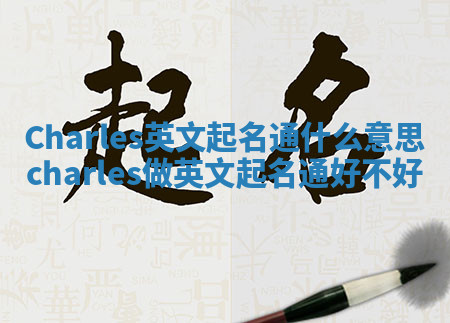 起名
Charles英文起名通什么意思
charles做英文起名通好不好